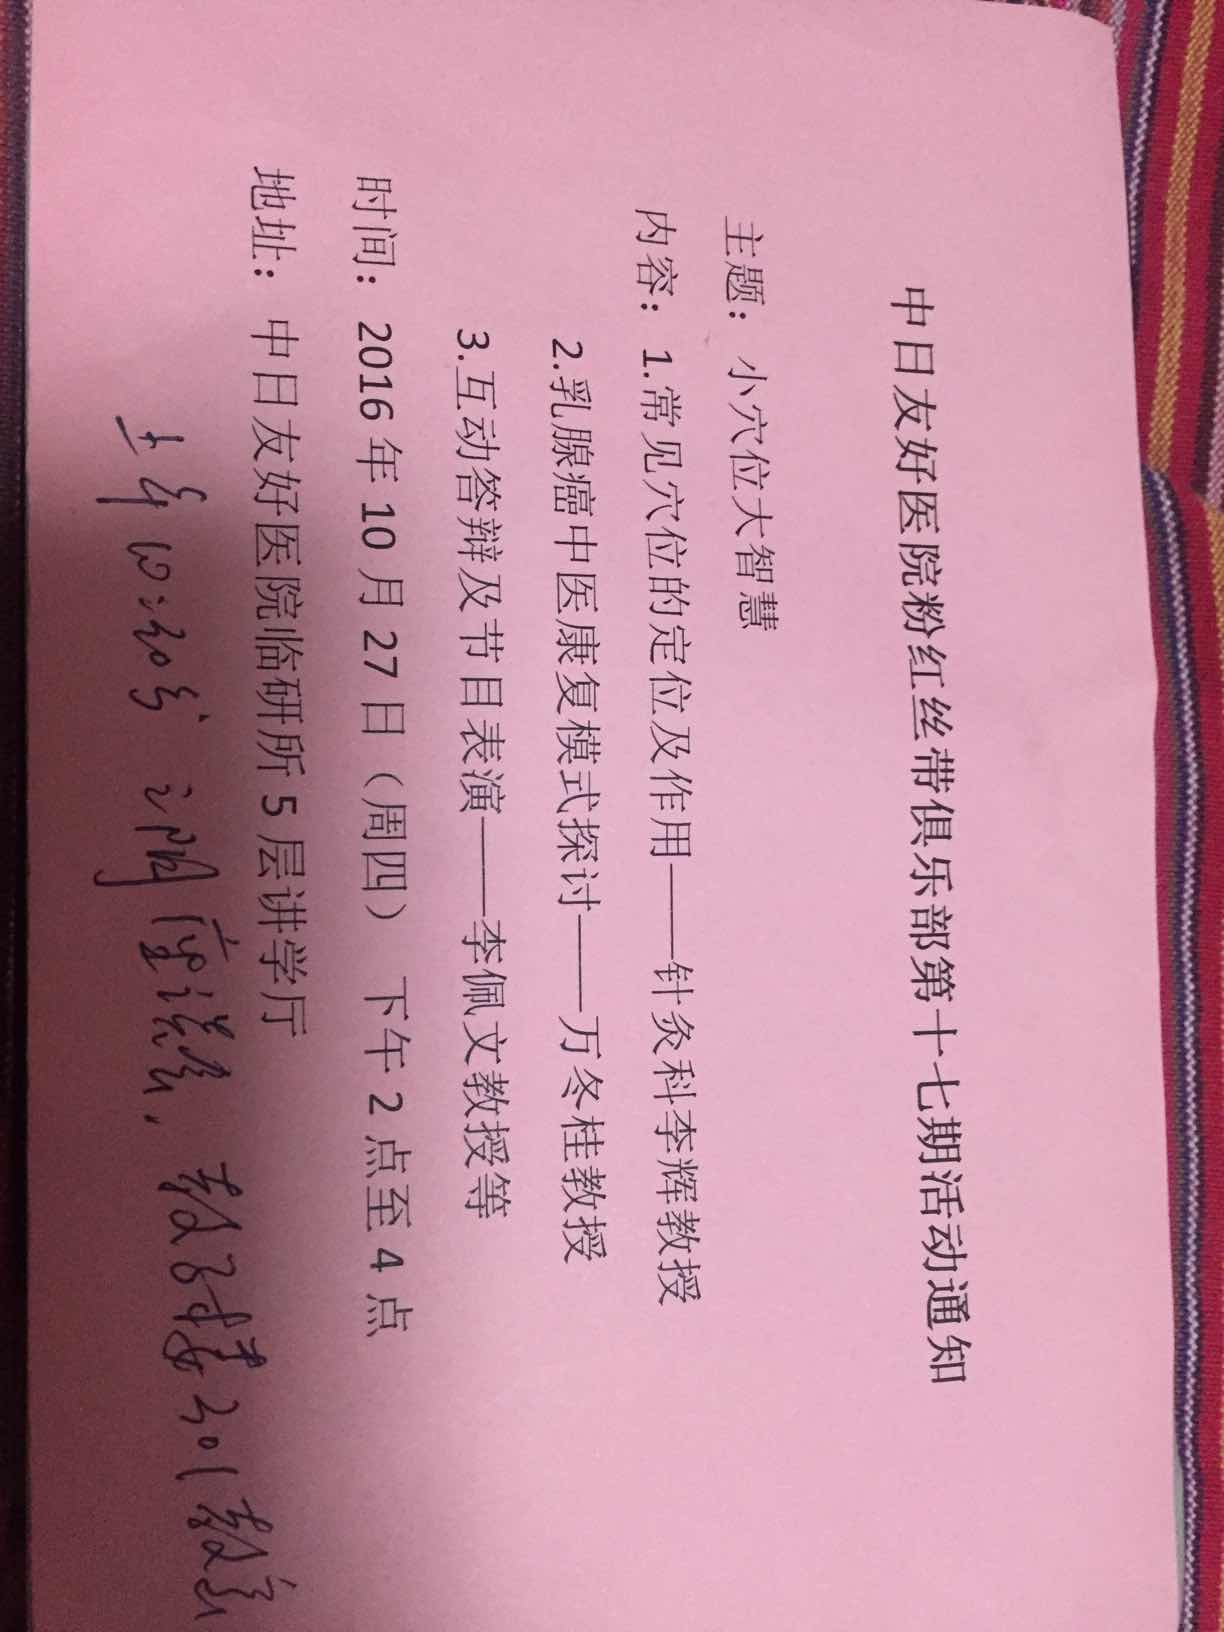 中日友好医院粉红丝带俱乐部第十七期活动通知
主题：小穴位大智慧
内容：1.常见穴位的定位及作用——针灸科李辉教授
2.乳腺癌中医康复模式探讨——万冬桂教授
3.互动答辩及节目表演——李佩文教授等
时间：2016年10月27日（周四） 下午2点至4点
地址：中日友好医院临研所5层讲学厅
上午10:30分 教学楼301教室